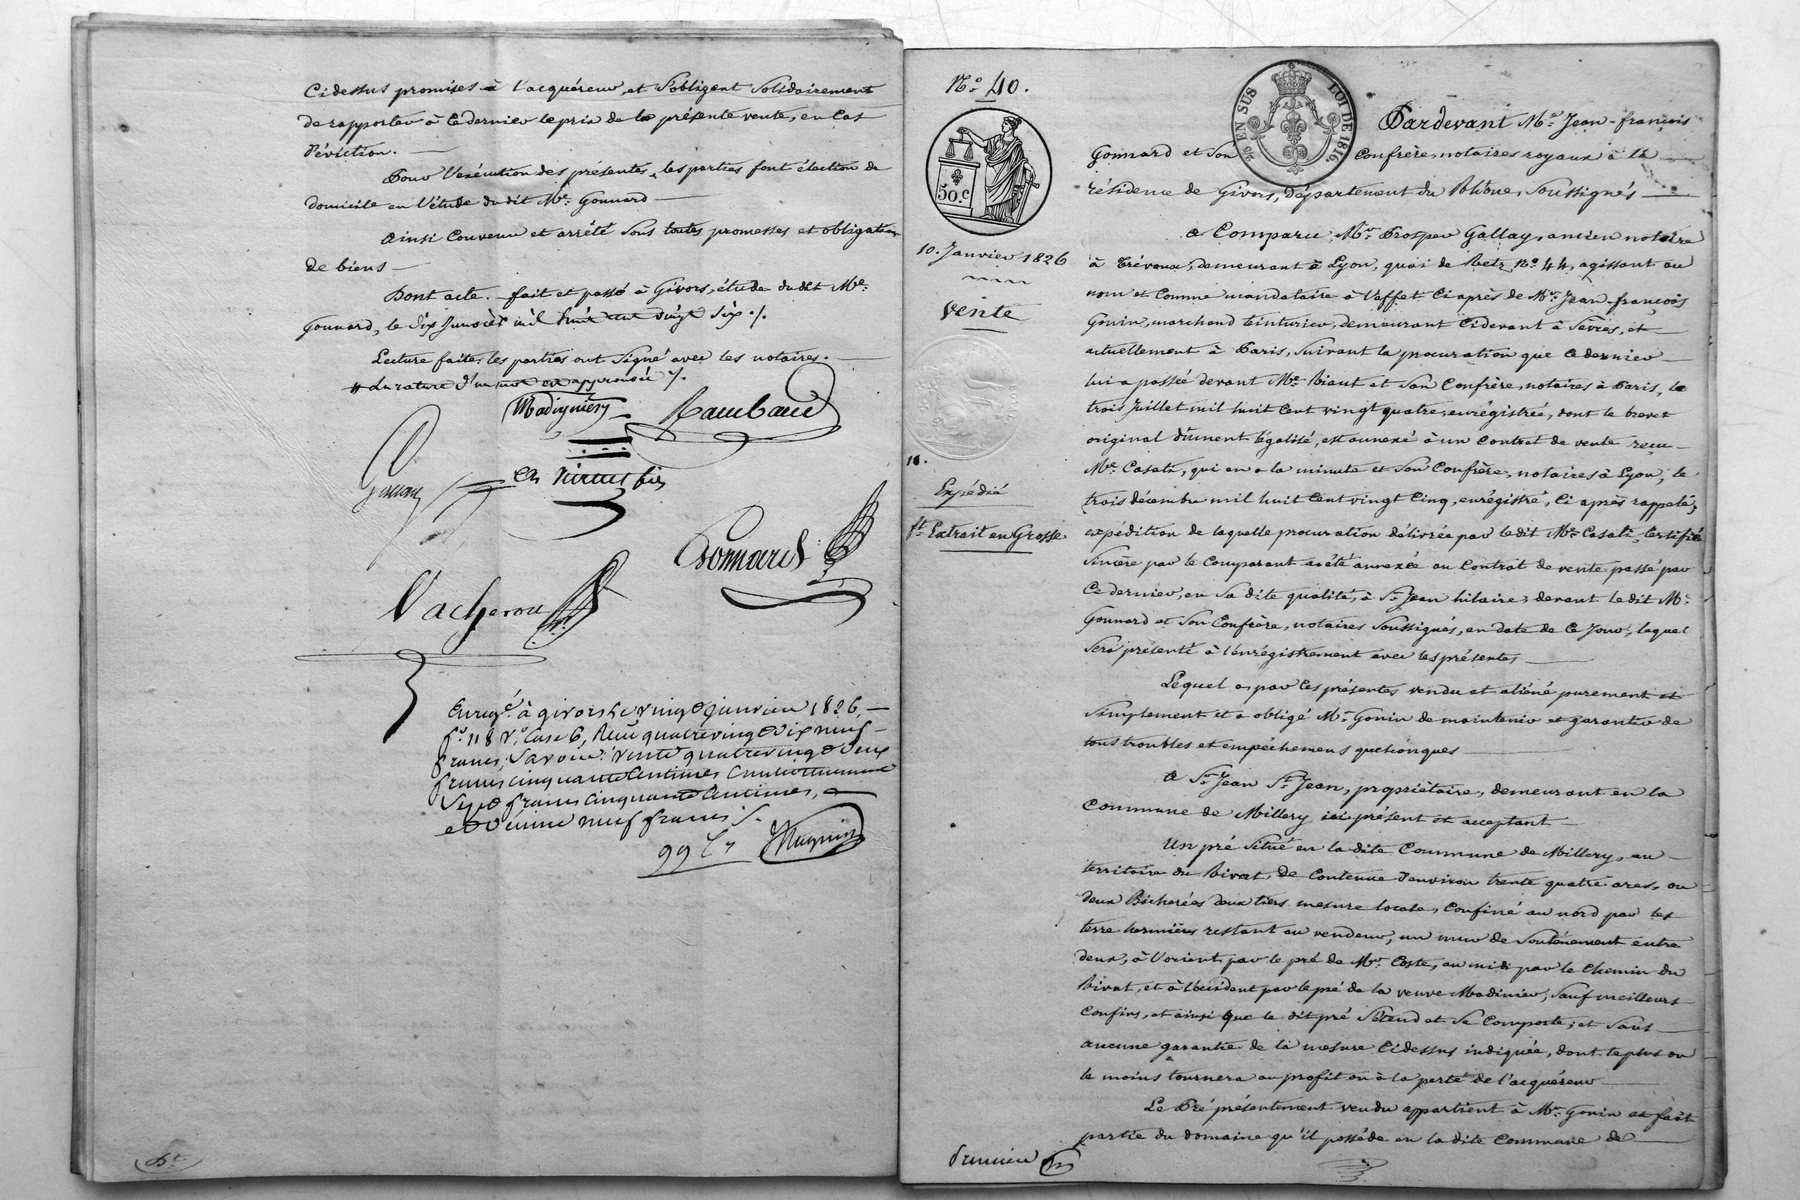 Cidessus promises à l'acquéreur, et s'obligent solidairement
de rapporter à ce dernier le prix de la présente vente, en cas
d'éviction.
Pour l'exécution des présentes, les parties font élection de
domicile en l'étude du dit Me. Gonnard
Ainsi convenu et arrêté sous toutes promesses et obligation
de biens
Dont acte. fait et passé à Givors, étude du dit Me.
Gonnard, le dix janvier mil huit cent vingt six ./.
Lecture faite, les parties ont signé avec les notaires.
la rature d'un mot est approuvée ./.
Rambaud
fils
Gonnard
Vacheron
Enregé. à givors le vingt janvier 1826,
fo. 118 vo. Case 6, Reçu quatrevingt dix neuf
francs, Savoir: vente quatrevingt deux
francs cinquante Centimes Cautionnement
Sept francs cinquante Centimes,
et neuf francs
99
No. 40.
50.c
EN SUS LOI DE 1816.
10. Janvier 1826
Vente
Expédié
ft. Extrait en Grosse
Pardevant Me. Jean-françois
Gonnard et Son Confrère, notaires royaux à la
résidence de Givors, département du Rhône, Soussignés
A Comparu Mr. Prosper Gallay, ancien notaire
à Trévoux, demeurant à Lyon, quai de Retz, No. 44, agissant au
nom et comme mandataire à l'effet ci après de Mr. Jean-françois
Gonin, marchand teinturier, demeurant cidevant à Sèvres, et
actuellement à Paris, suivant la procuration que ce dernier
lui a passée devant Me. Riant et Son Confrère, notaires à Paris, le
trois Juillet mil huit cent vingt quatre, enrégistrée, dont le brevet
original dûment légalisé, est annexé à un contrat de vente reçu
Me. Casati, qui en a la minute et Son Confrère, notaires à Lyon, le
trois décembre mil huit cent vingt cinq, enrégistré, ci après rappelé,
expédition de laquelle procuration délivrée par le dit Me. Casati, certifiée
sincère par le comparant a été annexée au Contrat de vente passé par
ce dernier, en sa dite qualité, à St. Jean hilaire, devant le dit Me.
Gonnard et Son Confrère, notaires Soussignés, en date de ce jour, lequel
sera présenté à l'enrégistrement avec les présentes
Lequel a, par ces présentes vendu et aliéné purement et
simplement et a obligé Mr. Gonin de maintenir et garantir de
tous troubles et empêchemens quelconques
A Sr. Jean St. Jean, propriétaire, demeurant en la
Commune de Millery ici présent et acceptant
Un pré situé en la dite Commune de Millery, au
territoire du Rivat, de contenue d'environ trente quatre ares, ou
deux Bicherées deux tiers mesure locale, Confiné au nord par les
terre hermières restant au vendeur, un mur de soutènement entre
deux, à l'orient par le pré de Mr. Coste, au midi par le chemin du
Rivat, et à l'occident par le pré de la veuve Madinier, sauf meilleurs
Confins, et ainsi que le dit pré s'étend et se comporte, et sans
aucune garantie de la mesure cidessus indiquée, dont le plus ou
le moins tournera au profit ou à la perte de l'acquéreur
Le Pré présentement vendu appartient à Mr. Gonin et fait
partie du domaine qu'il possède en la dite Commune de